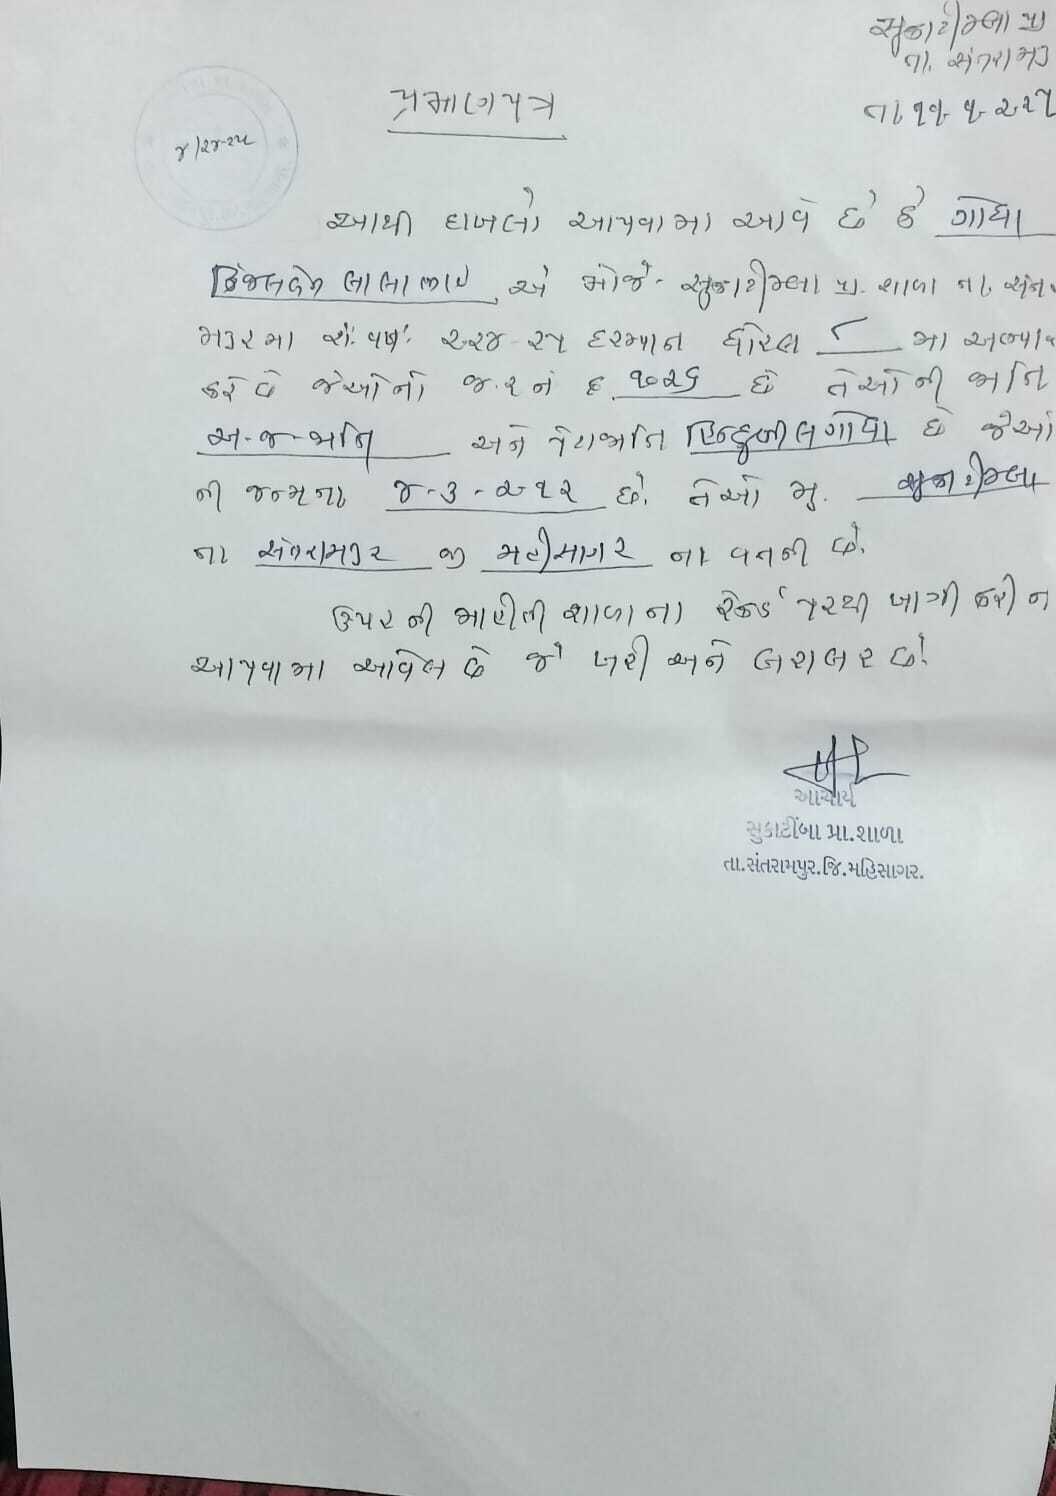 સુકાટીંબા પ્રા
તા. સંતરામપુ
પ્રમાણપત્ર
તા
આથી દાખલો આપવામા આવે છે કે ગોધા
કિંજલબેન લાલાભાઇ એ મોજે- સુકાટીમ્બા પ્રા. શાળા તા. સંત
મપુરમા શૈ. વર્ષ ૨૦૨૪-૨૫ દરમ્યાન ધોરણ ૮ મા અભ્યા
કરે છે જેઓનો જ.ર નં ૧૦૨૬ છે તેઓની જાતિ
અ-જ-જાતિ અને પેટાજાતિ હિન્દુભીલ ગોધા છે જેઓ
ની જન્મ તા ૪-૩-૨૦૧૨ છે. તેઓ મુ. સુકાટીમ્બા
તા સંતરામપુર જી મહીસાગર ના વતની છે.
ઉપર ની માહીતી શાળા ના રેકર્ડ પરથી ખાત્રી કરી ન
આપવામા આવેલ છે જે ખરી અને બરાબર છે.
આચાર્ય
સુકાટીંબા પ્રા.શાળા
તા.સંતરામપુર.જિ.મહિસાગર.